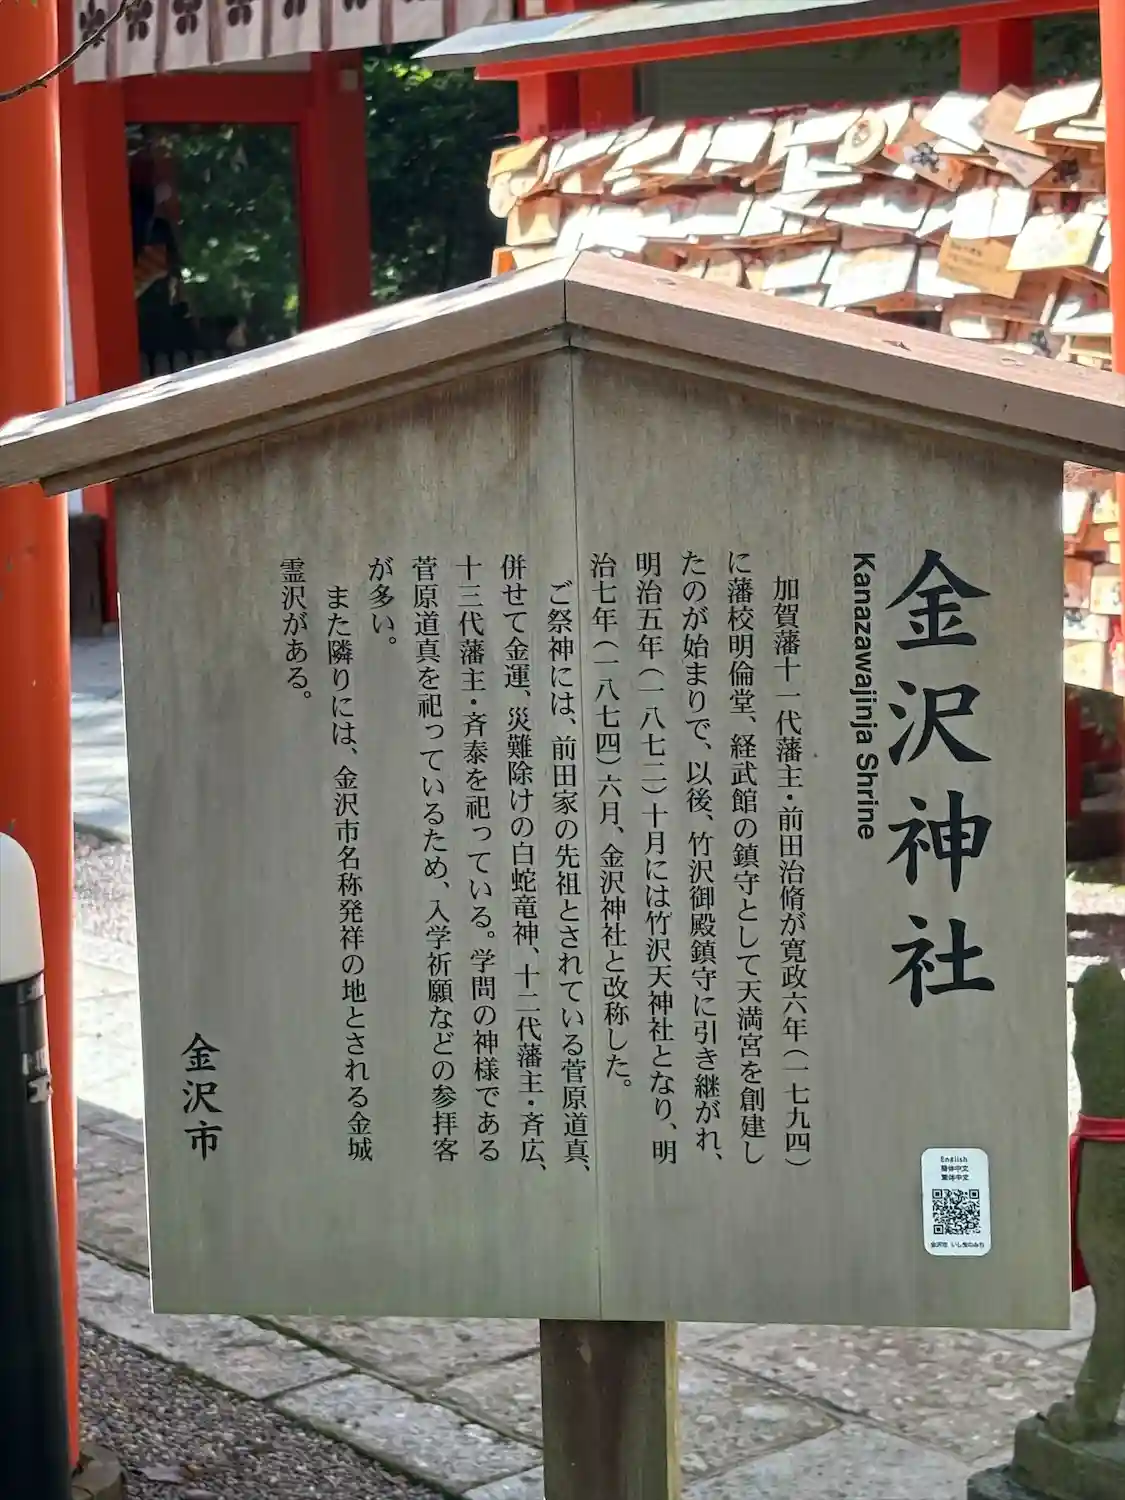 金沢神社
Kanazawajinja Shrine
加賀藩十一代藩主・前田治脩が寛政六年(一七九四)
に藩校明倫堂、経武館の鎮守として天満宮を創建し
たのが始まりで、以後、竹沢御殿鎮守に引き継がれ、
明治五年(一八七二)十月には竹沢天神社となり、明
治七年(一八七四)六月、金沢神社と改称した。
ご祭神には、前田家の先祖とされている菅原道真、
併せて金運、災難除けの白蛇竜神、十二代藩主・斉広、
十三代藩主・斉泰を祀っている。学問の神様である
菅原道真を祀っているため、入学祈願などの参拝客
が多い。
また隣りには、金沢市名称発祥の地とされる金城
霊沢がある。
金沢市
English
簡体中文
繁体中文
金沢市 いしぶみめぐり